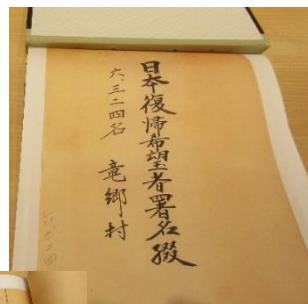 日本復帰希望者署名綴
六、三二四名 竜郷村